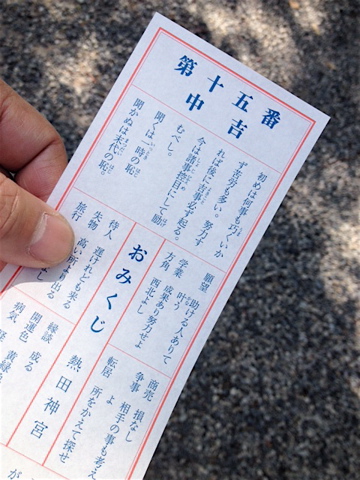 第十五番
中吉
初めは何事も巧くいか
ず苦労も多い。努力す
れば後に吉事必ず起る。
今は諸事控目にして励
むべし。
聞くは一時の恥
聞かぬは末代の恥。
願望 助ける人ありて
叶う
学業 成果あり努力せよ
方角 西北よし
おみくじ
待人 遅けれども来る
失物 高い所より出る
旅行
よし
商売 損なし
争事 相手の事も考え
よ
転居 所をかえて探せ
熱田神宮
縁談 成る
開運色 黄緑
病気
が